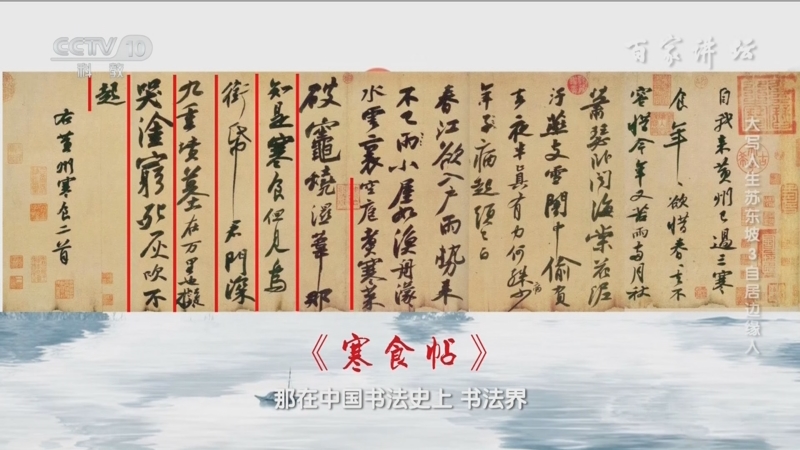 CCTV 10
科教
百家讲坛
自我来黄州已過三寒
食年〻欲惜春〻去不
容惜今年又苦雨兩月秋
蕭瑟卧聞海棠花泥
汙燕支雪闇中偷負
去夜半真有力何殊少
病
年子病起頭已白
春江欲入户雨勢来
不已雨小屋如漁舟濛〻
水雲裏空庖煮寒菜
破竈燒濕葦那
知是寒食但見烏
銜帋君門深
九重墳墓在万里也擬
哭塗窮死灰吹不
起
右黄州寒食二首
大写人生苏东坡3自居边缘人
《寒食帖》
那在中国书法史上 书法界